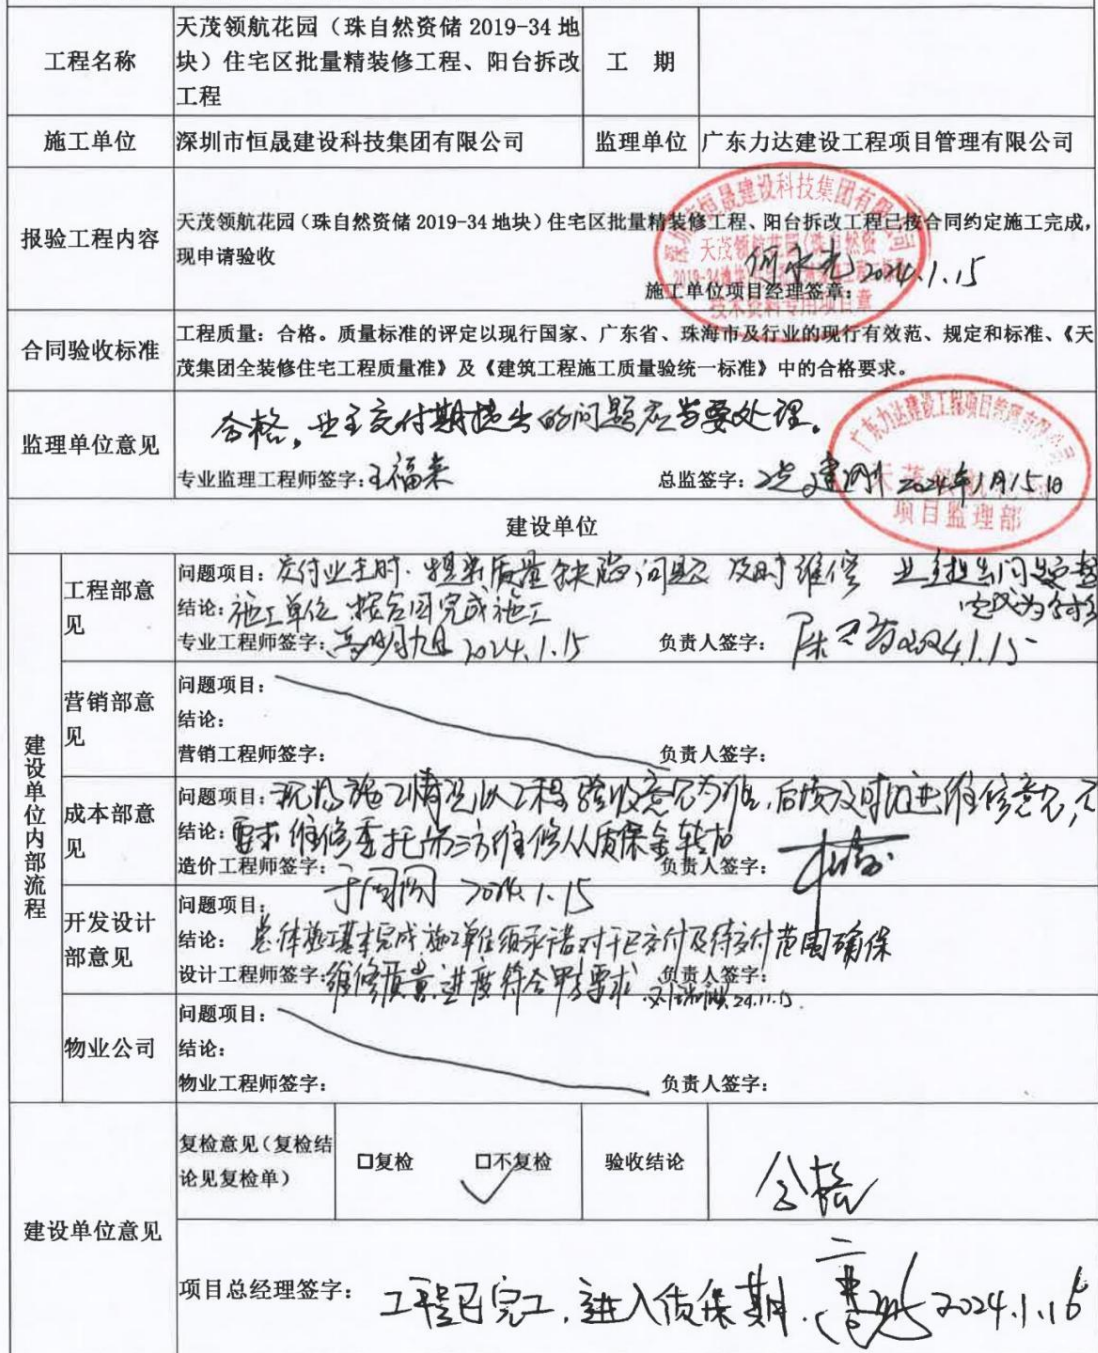 工程名称
天茂领航花园（珠自然资储 2019-34 地
块）住宅区批量精装修工程、阳台拆改
工程
工 期
施工单位 深圳市恒晟建设科技集团有限公司 监理单位 广东力达建设工程项目管理有限公司
报验工程内容
天茂领航花园（珠自然资储 2019-34 地块）住宅区批量精装修工程、阳台拆改工程已按合同约定施工完成，
现申请验收
施工单位项目经理签章：2024.1.15
深圳市恒晟建设科技集团有限公司
技术资料专用项目章
合同验收标准
工程质量：合格。质量标准的评定以现行国家、广东省、珠海市及行业的现行有效范、规定和标准、《天
茂集团全装修住宅工程质量准》及《建筑工程施工质量验统一标准》中的合格要求。
监理单位意见
合格，业主交付期提出的问题应当要处理。
专业监理工程师签字：王福来 总监签字： 2024年1月15日
广东力达建设工程项目管理有限公司
天茂领航
项目监理部
建设单位
建设单位内部流程
工程部意见
问题项目：交付业主时，提出质量缺陷问题及时维修
结论：施工单位按合同完成施工
专业工程师签字： 2024.1.15 负责人签字： 2024.1.15
营销部意见
问题项目：
结论：
营销工程师签字： 负责人签字：
成本部意见
问题项目：现场施工情况以工程验收意见为准，后续及时跟进维修意见，
结论：要求维修委托第三方维修从质保金转扣
造价工程师签字： 2024.1.15 负责人签字：
开发设计部意见
问题项目：
结论：总体施工基本完成 施工单位须承诺对于已交付及待交付范围确保
设计工程师签字：维修质量、进度符合甲方要求 负责人签字：
物业公司
问题项目：
结论：
物业工程师签字： 负责人签字：
建设单位意见
复检意见（复检结
论见复检单）
□复检 □不复检 ✓
验收结论 合格
项目总经理签字：工程已完工，进入质保期。 2024.1.16